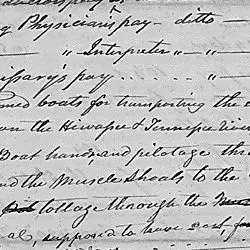 Physicians pay - ditto
" Interpreter " - "
issary's pay
boats for transporting the
on the Hiwassee & Tennessee
Boat hands, and pilotage th
nd the Muscle Shoals to the
tollage through the
al, supposed to have cost, for